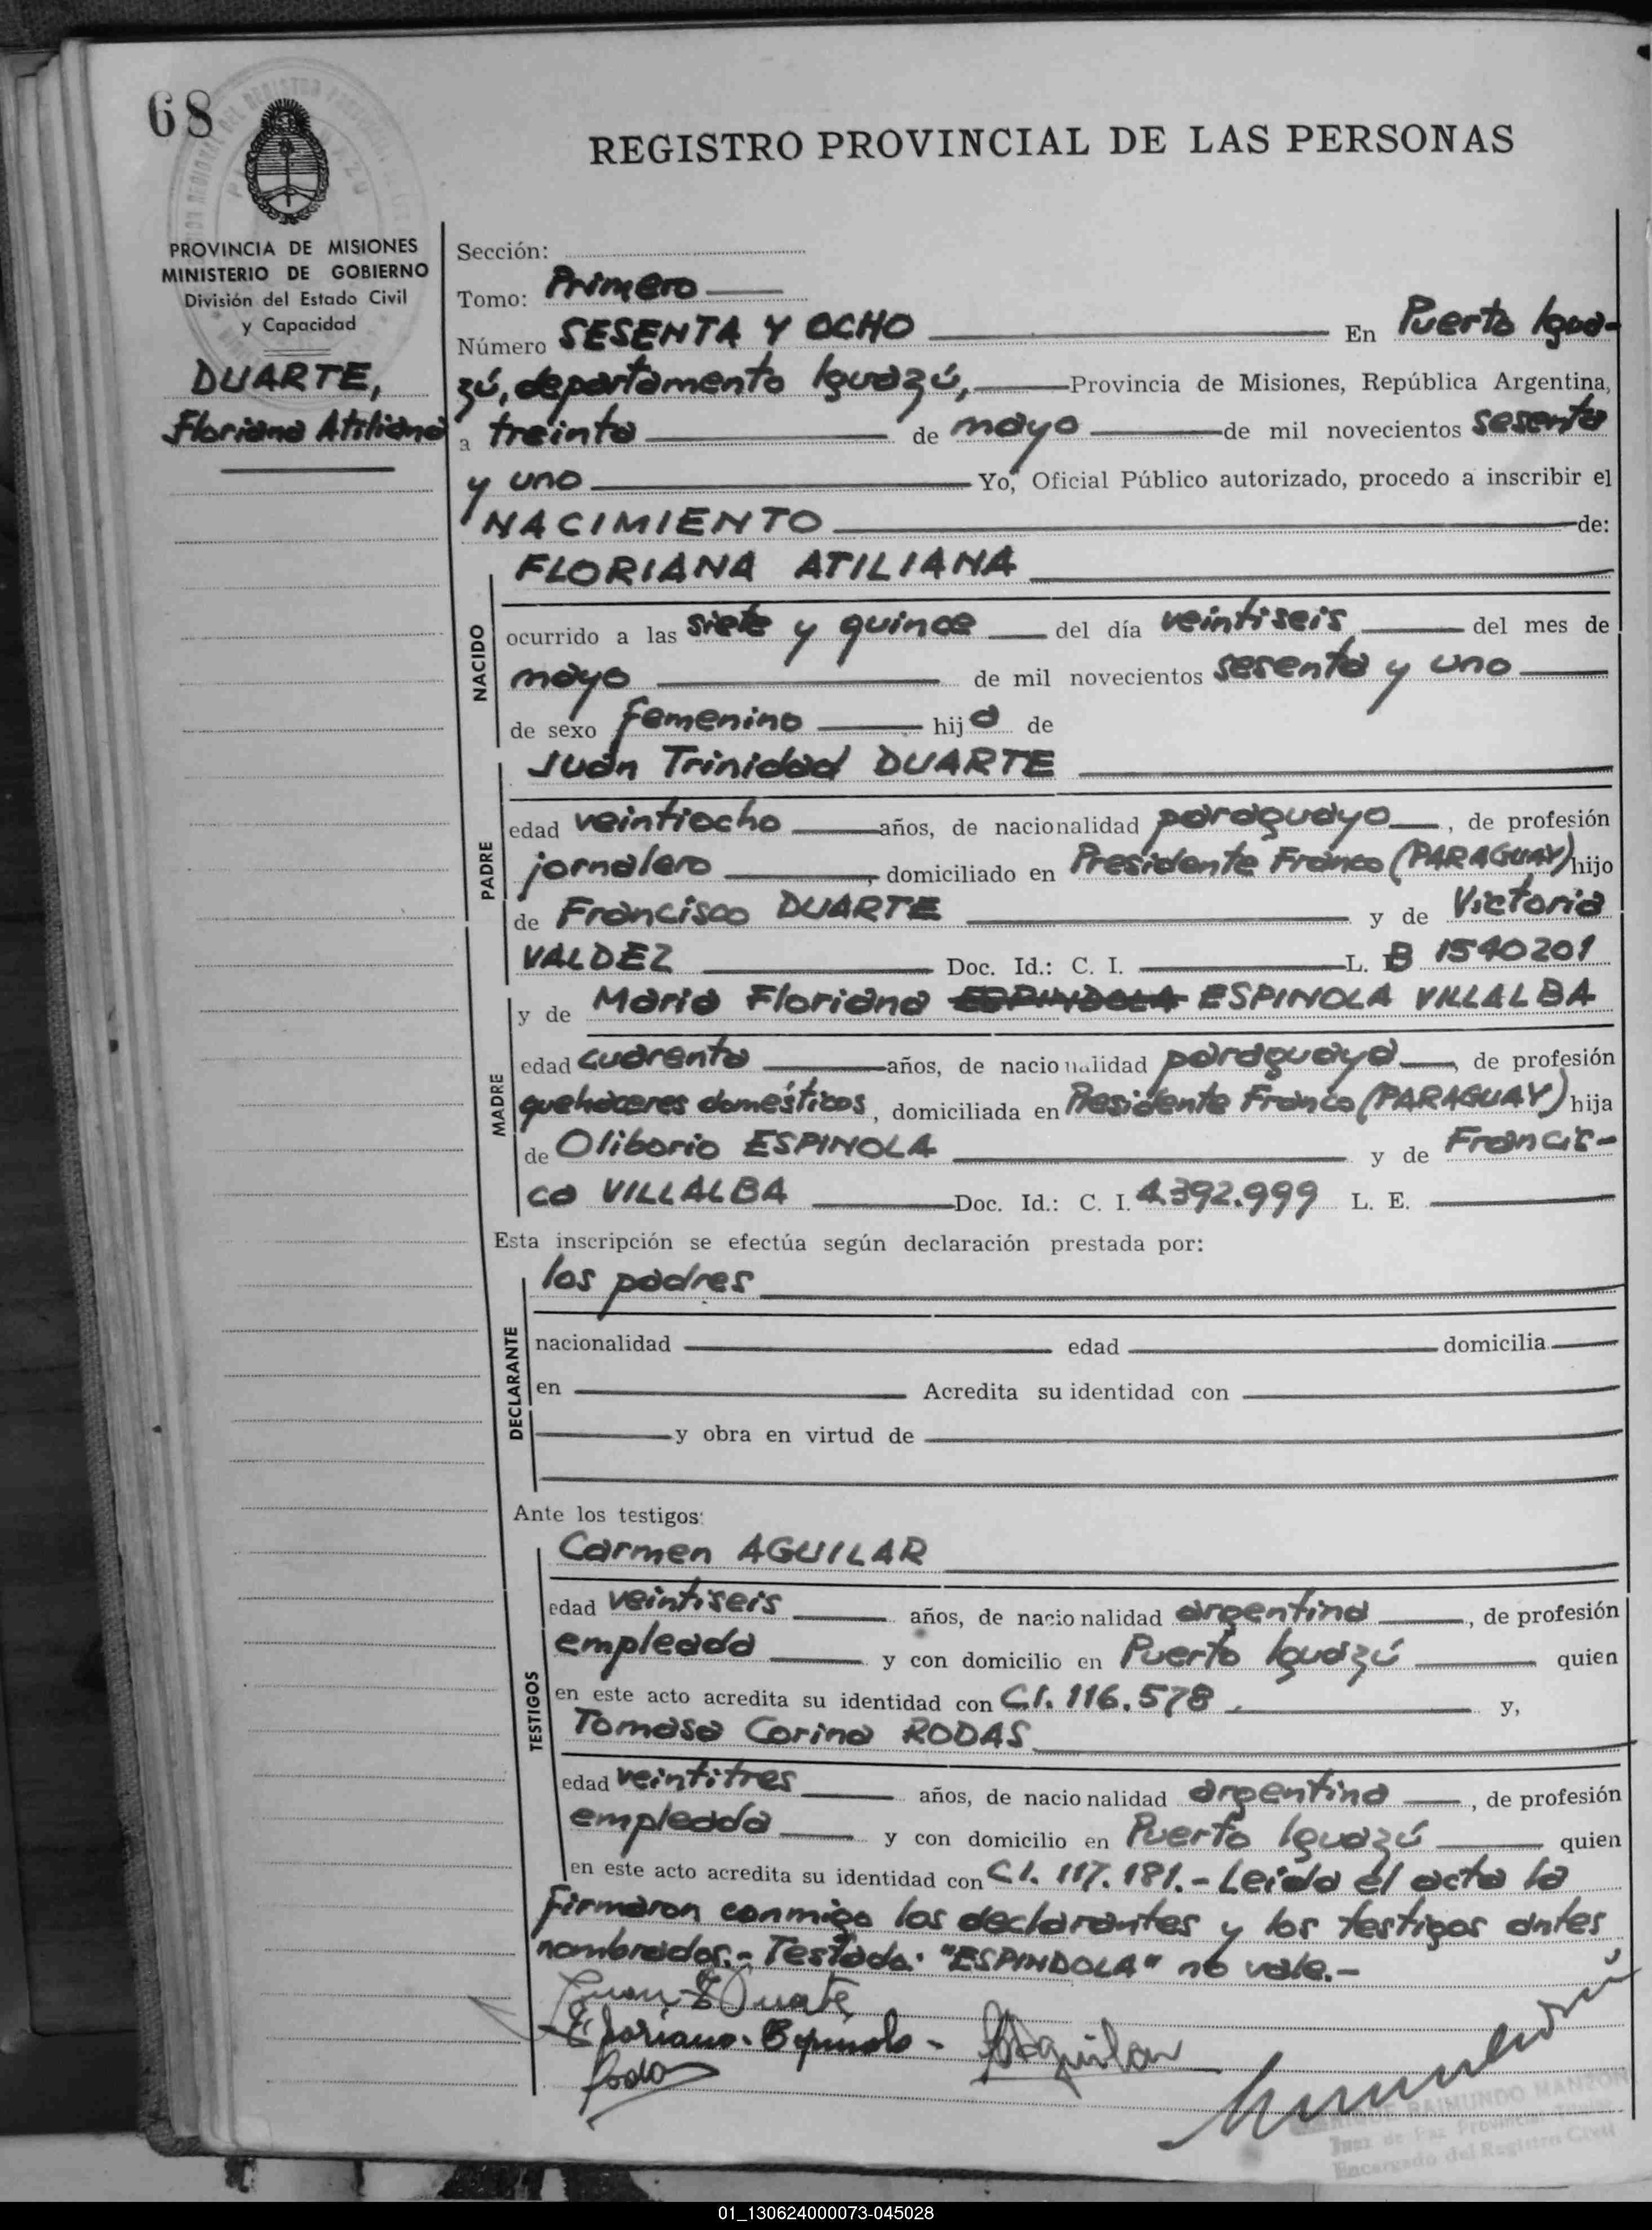 68
REGISTRO PROVINCIAL DE LAS PERSONAS
PROVINCIA DE MISIONES
MINISTERIO DE GOBIERNO
División del Estado Civil
y Capacidad
DUARTE,
Floriana Atiliana
Sección:
Tomo: Primero
Número SESENTA Y OCHO En Puerto Igua-
zú, departamento Iguazú, Provincia de Misiones, República Argentina,
a treinta de mayo de mil novecientos sesenta
y uno Yo, Oficial Público autorizado, procedo a inscribir el
NACIMIENTO de:
FLORIANA ATILIANA
NACIDO
ocurrido a las siete y quince del día veintiseis del mes de
mayo de mil novecientos sesenta y uno
de sexo femenino hija de
Juan Trinidad DUARTE
PADRE
edad veintiocho años, de nacionalidad paraguayo, de profesión
jornalero, domiciliado en Presidente Franco (PARAGUAY) hijo
de Francisco DUARTE y de Victoria
VALDEZ Doc. Id.: C. I. L. B 1540201
y de Maria Floriana ESPINDOLA ESPINOLA VILLALBA
MADRE
edad cuarenta años, de nacionalidad paraguaya, de profesión
quehaceres domésticos, domiciliada en Presidente Franco (PARAGUAY) hija
de Oliborio ESPINOLA y de Francis-
ca VILLALBA Doc. Id.: C. I. 4.392.999 L. E.
Esta inscripción se efectúa según declaración prestada por:
los padres
DECLARANTE
nacionalidad edad domicilia
en Acredita su identidad con
y obra en virtud de
Ante los testigos:
Carmen AGUILAR
TESTIGOS
edad veintiseis años, de nacionalidad argentina, de profesión
empleada y con domicilio en Puerto Iguazú quien
en este acto acredita su identidad con C.I. 116.578 y,
Tomasa Corina RODAS
edad veintitres años, de nacionalidad argentina, de profesión
empleada y con domicilio en Puerto Iguazú quien
en este acto acredita su identidad con C.I. 117.181.- Leída el acta la
firmaron conmigo los declarantes y los testigos antes
nombrados.- Testado: "ESPINDOLA" no vale.-
Juan T Duarte
Floriana Espinola -
Aguilar
Rodas
RAIMUNDO MANZON
Juez de Paz Provincial Titular
Encargado del Registro Civil
01_130624000073-045028